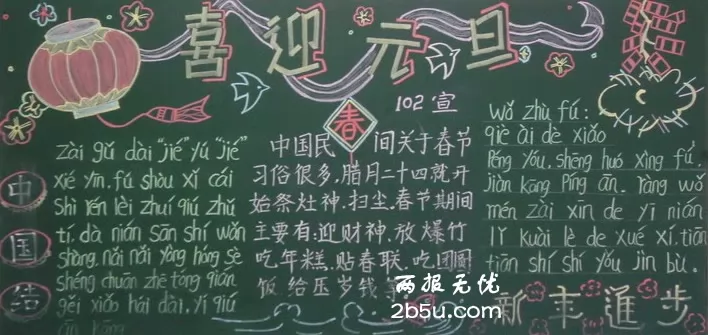 喜迎元旦
102宣
中国结
zài gǔ dài "jié" yú "jié"
xié yīn. fú shòu xǐ cái
Shì rén lèi zhuī qiú zhǔ
tí. dà nián sān shí wǎn
shàng. nǎi nai yòng hóng sè
shéng chuān zhe tóng qián
gěi xiǎo hái dài. yì qiú
春
中国民 间关于春节
习俗很多,腊月二十四就开
始祭灶神.扫尘.春节期间
主要有:迎财神.放爆竹
吃年糕.贴春联.吃团圆
饭给压岁钱等
wǒ zhù fú:
qiē ài dè xiǎo
Péng yǒu. shēng huó xìng fú.
jiàn kāng Píng ān. ràng wǒ
mén zài xīn de yī nián
lǐ kuài lè de xué xí. tiān
tiān shí shí yǒu jìn bù.
新主進步
两报无忧
2b5u.com